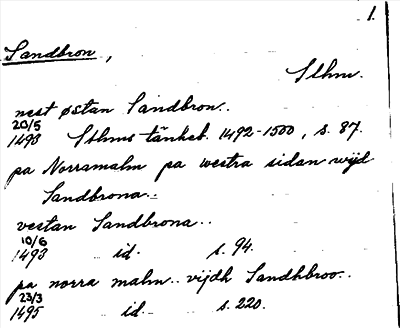 1.
Sandbron,
Sthm.
nest østan Sandbron..
20/5
1493 Sthms tänkeb. 1492-1500, s. 87.
pa Norramalm pa westra sidan wijd
Sandbrona..
vestan Sandbrona..
10/6
1493 id. s. 94.
pa norra malm.. vijdh Sandhbroo..
23/3
1495 id. s. 220.